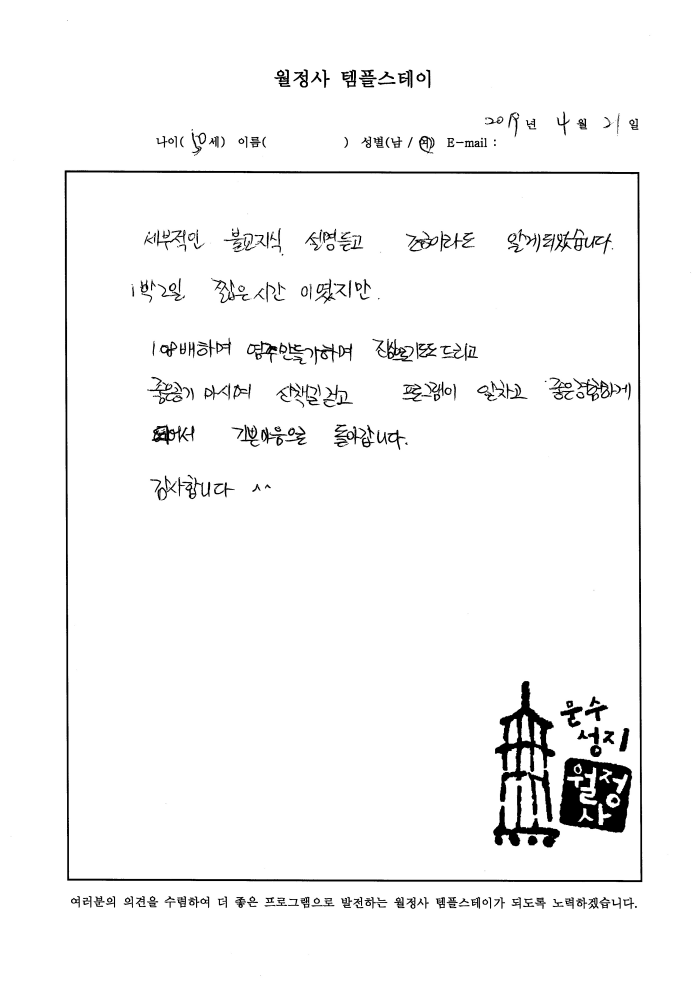 월정사 템플스테이
2019년 4월 21일
나이( 50세) 이름( ) 성별(남 / 여) E-mail :
세부적인 불교지식 설명듣고 조금이라도 알게되었습니다.
1박2일 짧은시간 이였지만.
108배하며 염주만들기하며 기도드리고
좋은공기 마시며 산책길걷고 프로그램이 알차고 좋은경험하게
되어서 기쁜마음으로 돌아갑니다.
감사합니다 ^^
문수
성지
월정
사
여러분의 의견을 수렴하여 더 좋은 프로그램으로 발전하는 월정사 템플스테이가 되도록 노력하겠습니다.